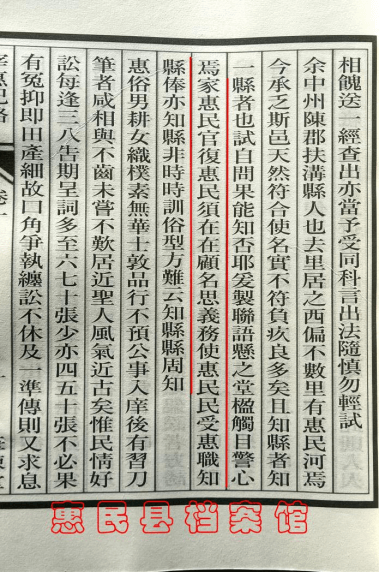 相餽送一經查出亦當予受同科言出法隨慎勿輕試
余中州陳郡扶溝縣人也去里居之西偏不數里有惠民河焉
今承乏斯邑天然符合使名實不符負疚良多矣且知縣者知
一縣者也試自問果能知否耶爰製聯語懸之堂楹觸目警心
焉家惠民官復惠民須在在顧名思義務使惠民民受惠職知
縣俸亦知縣非時時訓俗型方難云知縣縣周知
惠俗男耕女織樸素無華士敦品行不預公事入庠後有習刀
筆者咸相與不齒未嘗不歎居近聖人風氣近古矣惟民情好
訟每逢三八告期呈詞多至六七十張少亦四五十張不必果
有冤抑即田產細故口角爭執纏訟不休及一準傳則又求息
惠民县档案馆